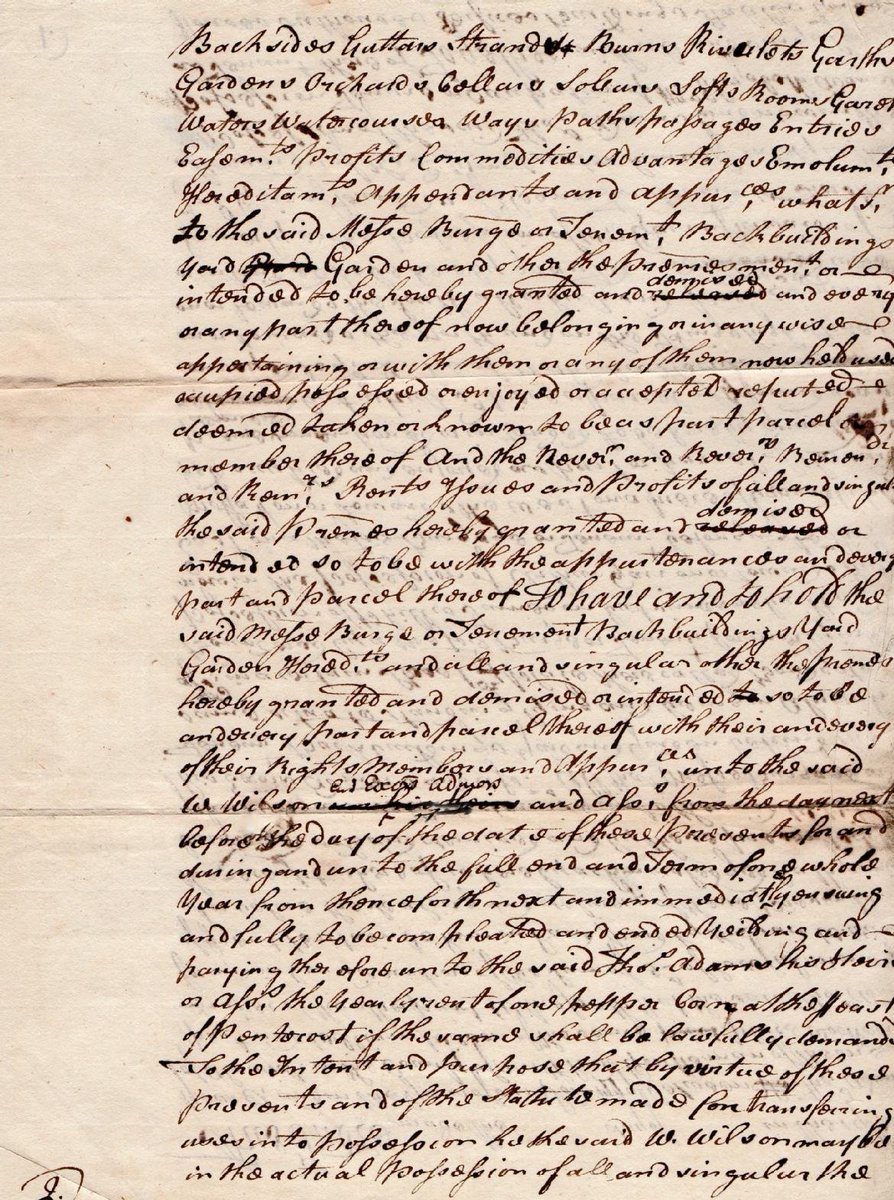 Backsides Guttars Strands Burns Rivulets Garths
Gardens Orchards Cellars Solears Lofts Rooms
Waters Watercourses Ways Paths passages Entries
Easem.ts Profits Commodities Advantages Emolum.ts
Hereditam.ts Appendants and appur.ces whats.r
to the said Messe Burge or Tenem.t Backbuildings
yard Garden and other the Premes ment.d or
intended to be hereby granted and released demised and every
or any part thereof now belonging or in any wise
appertaining or with them or any of them now held used
occupied possessed or enjoyed or accepted reputed
deemed taken or known to be as part parcel or
member thereof And the Rever.n and Rever.ns Remen.dr
and Rem.rs Rents Yssues and Profits of all and singular
the said Premes hereby granted and released demised or
intended so to be with the appurtenances and every
part and parcel thereof To have and to hold the
said Messe Burge or Tenement Backbuildings Yard
Garden Hered.ts and all and singular other the premes
hereby granted and demised or intended to so to be
and every part and parcel thereof with their and every
of their Rights Members and Appur.ces unto the said
W. Wilson Exors Admors and Ass.s from the day next
before the day of the date of these Presents for and
during and unto the full end and Term of one whole
Year from thenceforth next and immediatly ensuing
and fully to be compleated and ended Yeilding and
paying therefore unto the said Tho.s Adams his Heirs
or Ass.s the Yearly rent of one pepper Corn at the Feast
of Pentecost if the same shall be lawfully demanded
To the Intent and purpose that by virtue of these
presents and of the Statute made for transfering
uses into possession he the said W. Wilson may be
in the actual Possession of all and singular the
2.